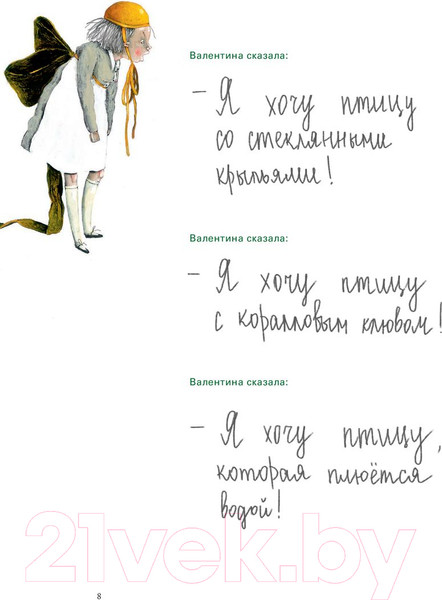 Валентина сказала:
– Я хочу птицу
со стеклянными
крыльями!
Валентина сказала:
– Я хочу птицу
с коралловым клювом!
Валентина сказала:
– Я хочу птицу,
которая плюётся
водой!
21vek.by
8